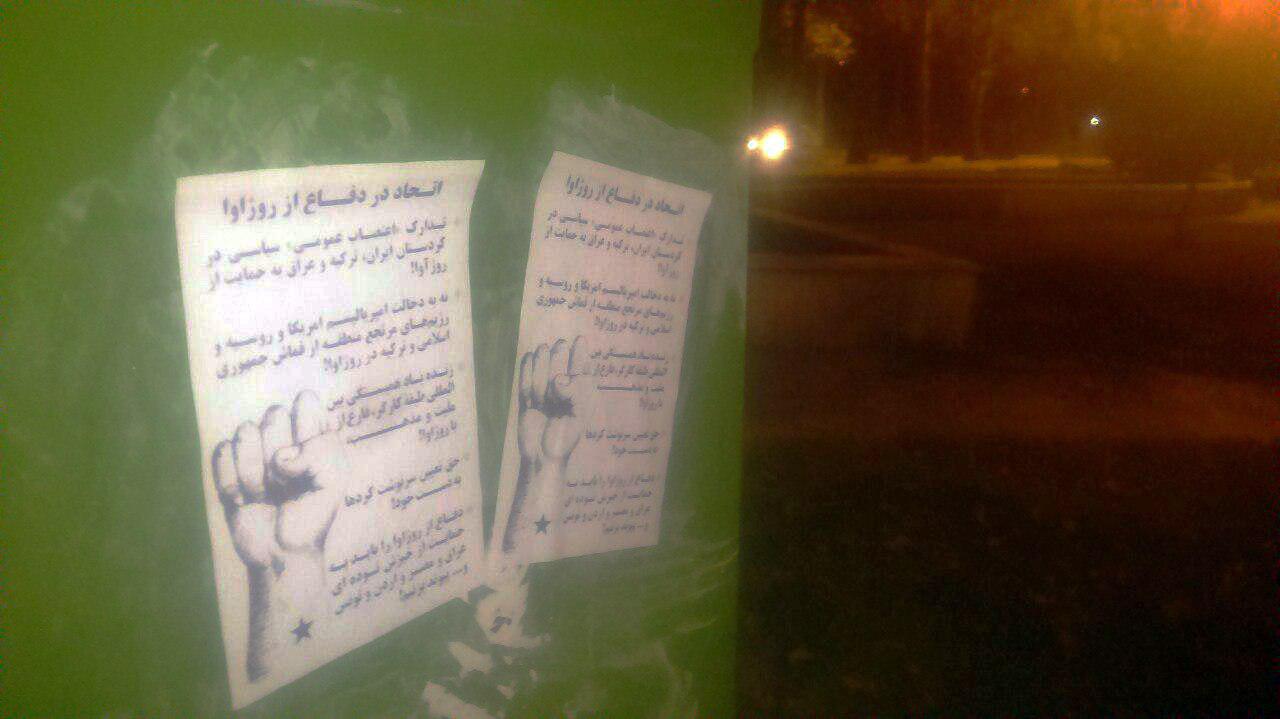 اتحاد در دفاع از روژاوا
* تدارک «اعتصاب عمومی» سیاسی در
کردستان ایران، ترکیه و عراق به حمایت از
روژآوا!
* نه به دخالت امپریالیسم امریکا و روسیه و
رژیم‌های مرتجع منطقه از قماش جمهوری
اسلامی و ترکیه در روژاوا!
* زنده باد همبستگی بین
المللی طبقه کارگر، فارغ از
ملیت و مذهب،
با روژاوا!
* حق تعیین سرنوشت کردها
به دست خود!
* دفاع از روژاوا را باید به
حمایت از خیزش توده ای
عراق و مصر و اردن و تونس
و... پیوند بزنیم!
اتحاد در دفاع از روژاوا
* تدارک «اعتصاب عمومی» سیاسی در
کردستان ایران، ترکیه و عراق به حمایت از
روژآوا!
* نه به دخالت امپریالیسم امریکا و روسیه و
رژیم‌های مرتجع منطقه از قماش جمهوری
اسلامی و ترکیه در روژاوا!
* زنده باد همبستگی بین
المللی طبقه کارگر، فارغ از
ملیت و مذهب،
با روژاوا!
* حق تعیین سرنوشت کردها
به دست خود!
* دفاع از روژاوا را باید به
حمایت از خیزش توده ای
عراق و مصر و اردن و تونس
و... پیوند بزنیم!